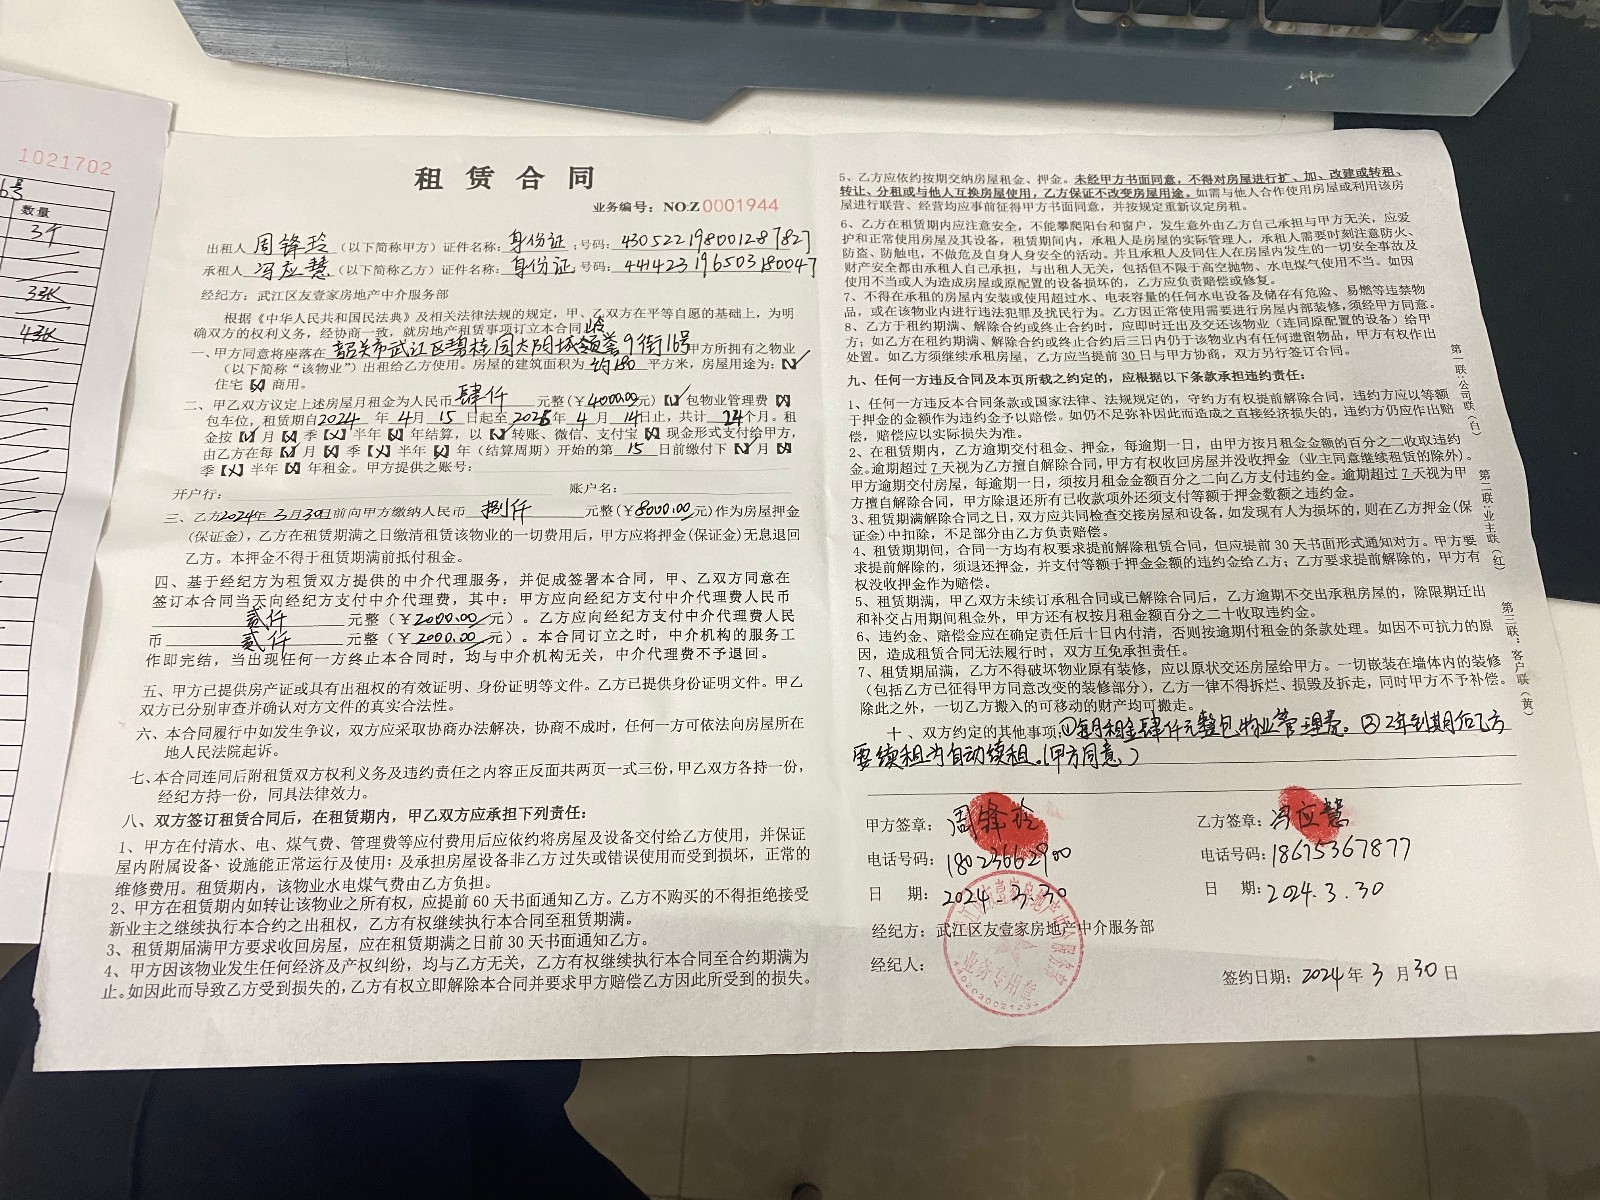 1021702
6号
数量
3个
3张
43张
租赁合同
业务编号：NO:Z0001944
出租人 周锋玲 （以下简称甲方）证件名称：身份证 ；号码：430522198001287827
承租人 冯应慧 （以下简称乙方）证件名称：身份证 号码：441423196503180047
经纪方：武江区友壹家房地产中介服务部
根据《中华人民共和国民法典》及相关法律法规的规定，甲、乙双方在平等自愿的基础上，为明
确双方的权利义务，经协商一致，就房地产租赁事项订立本合同：
一、甲方同意将座落在 韶关市武江区碧桂园太阳城 9街16号 甲方所拥有之物业
（以下简称“该物业”）出租给乙方使用。房屋的建筑面积为 约180 平方米，房屋用途为：【✓】
住宅【×】商用。
二、甲乙双方议定上述房屋月租金为人民币 肆仟 元整（￥4000.00元）【✓】包物业管理费【×】
包车位，租赁期自2024 年 4月 15 日起至 2026年 4月 14日止，共计 24个月。租
金按【✓】月【×】季【×】半年【×】年结算，以【✓】转账、微信、支付宝【×】现金形式支付给甲方，
由乙方在每【✓】月【×】季【×】半年【×】年（结算周期）开始的第 15 日前缴付下【✓】月【×】
季【×】半年【×】年租金。甲方提供之账号：
开户行： 账户名：
三、乙方2024年 3月30日前向甲方缴纳人民币 捌仟 元整（￥8000.00元）作为房屋押金
（保证金），乙方在租赁期满之日缴清租赁该物业的一切费用后，甲方应将押金（保证金）无息退回
乙方。本押金不得于租赁期满前抵付租金。
四、基于经纪方为租赁双方提供的中介代理服务，并促成签署本合同，甲、乙双方同意在
签订本合同当天向经纪方支付中介代理费，其中：甲方应向经纪方支付中介代理费人民币
贰仟 元整（￥2000.00元）。乙方应向经纪方支付中介代理费人民
币 贰仟 元整（￥2000.00元）。本合同订立之时，中介机构的服务工
作即完结，当出现任何一方终止本合同时，均与中介机构无关，中介代理费不予退回。
五、甲方已提供房产证或具有出租权的有效证明、身份证明等文件。乙方已提供身份证明文件。甲乙
双方已分别审查并确认对方文件的真实合法性。
六、本合同履行中如发生争议，双方应采取协商办法解决，协商不成时，任何一方可依法向房屋所在
地人民法院起诉。
七、本合同连同后附租赁双方权利义务及违约责任之内容正反面共两页一式三份，甲乙双方各持一份，
经纪方持一份，同具法律效力。
八、双方签订租赁合同后，在租赁期内，甲乙双方应承担下列责任：
1、甲方在付清水、电、煤气费、管理费等应付费用后应依约将房屋及设备交付给乙方使用，并保证
屋内附属设备、设施能正常运行及使用；及承担房屋设备非乙方过失或错误使用而受到损坏，正常的
维修费用。租赁期内，该物业水电煤气费由乙方负担。
2、甲方在租赁期内如转让该物业之所有权，应提前60天书面通知乙方。乙方不购买的不得拒绝接受
新业主之继续执行本合约之出租权，乙方有权继续执行本合同至租赁期满。
3、租赁期届满甲方要求收回房屋，应在租赁期满之日前30天书面通知乙方。
4、甲方因该物业发生任何经济及产权纠纷，均与乙方无关，乙方有权继续执行本合同至合约期满为
止。如因此而导致乙方受到损失的，乙方有权立即解除本合同并要求甲方赔偿乙方因此所受到的损失。
5、乙方应依约按期交纳房屋租金、押金。未经甲方书面同意，不得对房屋进行扩、加、改建或转租、
转让、分租或与他人互换房屋使用，乙方保证不改变房屋用途。如需与他人合作使用房屋或利用该房
屋进行联营、经营均应事前征得甲方书面同意，并按规定重新议定房租。
6、乙方在租赁期内应注意安全，不能攀爬阳台和窗户，发生意外由乙方自己承担与甲方无关，应爱
护和正常使用房屋及其设备，租赁期间内，承租人是房屋的实际管理人，承租人需要时刻注意防火、
防盗、防触电，不做危及自身人身安全的活动。并且承租人及同住人在房屋内发生的一切安全事故及
财产安全都由承租人自己承担，与出租人无关，包括但不限于高空抛物、水电煤气使用不当。如因
使用不当或人为造成房屋或原配置的设备损坏的，乙方应负责赔偿或修复。
7、不得在承租的房屋内安装或使用超过水、电表容量的任何水电设备及储存有危险、易燃等违禁物
品，或在该物业内进行违法犯罪及扰民行为。乙方因正常使用需要进行房屋内部装修，须经甲方同意。
8、乙方于租赁期满、解除合约或终止合约时，应即时迁出及交还该物业（连同原配置的设备）给甲
方；如乙方在租约期满、解除合约或终止合约后三日内仍于该物业内有任何遗留物品，甲方有权作出
处置。如乙方须继续承租房屋，乙方应当提前30日与甲方协商，双方另行签订合同。
九、任何一方违反合同及本页所载之约定的，应根据以下条款承担违约责任：
1、任何一方违反本合同条款或国家法律、法规规定的，守约方有权提前解除合同，违约方应以等额
于押金的金额作为违约金予以赔偿。如仍不足弥补因此而造成之直接经济损失的，违约方仍应作出赔
偿，赔偿应以实际损失为准。
2、在租赁期内，乙方逾期交付租金、押金，每逾期一日，由甲方按月租金金额的百分之二收取违约
金。逾期超过7天视为乙方擅自解除合同，甲方有权收回房屋并没收押金（业主同意继续租赁的除外）。
甲方逾期交付房屋，每逾期一日，须按月租金金额百分之二向乙方支付违约金。逾期超过7天视为甲
方擅自解除合同，甲方除退还所有已收款项外还须支付等额于押金数额之违约金。
3、租赁期满解除合同之日，双方应共同检查交接房屋和设备，如发现有人为损坏的，则在乙方押金（保
证金）中扣除，不足部分由乙方负责赔偿。
4、租赁期期间，合同一方均有权要求提前解除租赁合同，但应提前30天书面形式通知对方。甲方要
求提前解除的，须退还押金，并支付等额于押金金额的违约金给乙方；乙方要求提前解除的，甲方有
权没收押金作为赔偿。
5、租赁期满，甲乙双方未续订承租合同或已解除合同后，乙方逾期不交出承租房屋的，除限期迁出
和补交占用期间租金外，甲方还有权按月租金额百分之二十收取违约金。
6、违约金、赔偿金应在确定责任后十日内付清，否则按逾期付租金的条款处理。如因不可抗力的原
因，造成租赁合同无法履行时，双方互免承担责任。
7、租赁期届满，乙方不得破坏物业原有装修，应以原状交还房屋给甲方。一切嵌装在墙体内的装修
（包括乙方已征得甲方同意改变的装修部分），乙方一律不得拆烂、损毁及拆走，同时甲方不予补偿。
除此之外，一切乙方搬入的可移动的财产均可搬走。
十、双方约定的其他事项：①每月租金肆仟元整包物业管理费。②2年到期后乙方
要续租为自动续租。（甲方同意）
甲方签章：周锋玲 乙方签章：冯应慧
电话号码：18023662900 电话号码：18675367877
日 期：2024.3.30 日 期：2024.3.30
经纪方：武江区友壹家房地产中介服务部
经纪人：
签约日期：2024年 3 月 30 日
武江区友壹家房地产中介服务部
业务专用章
第一联：公司联（白）
第二联：业主联（红）
第三联：客户联（黄）